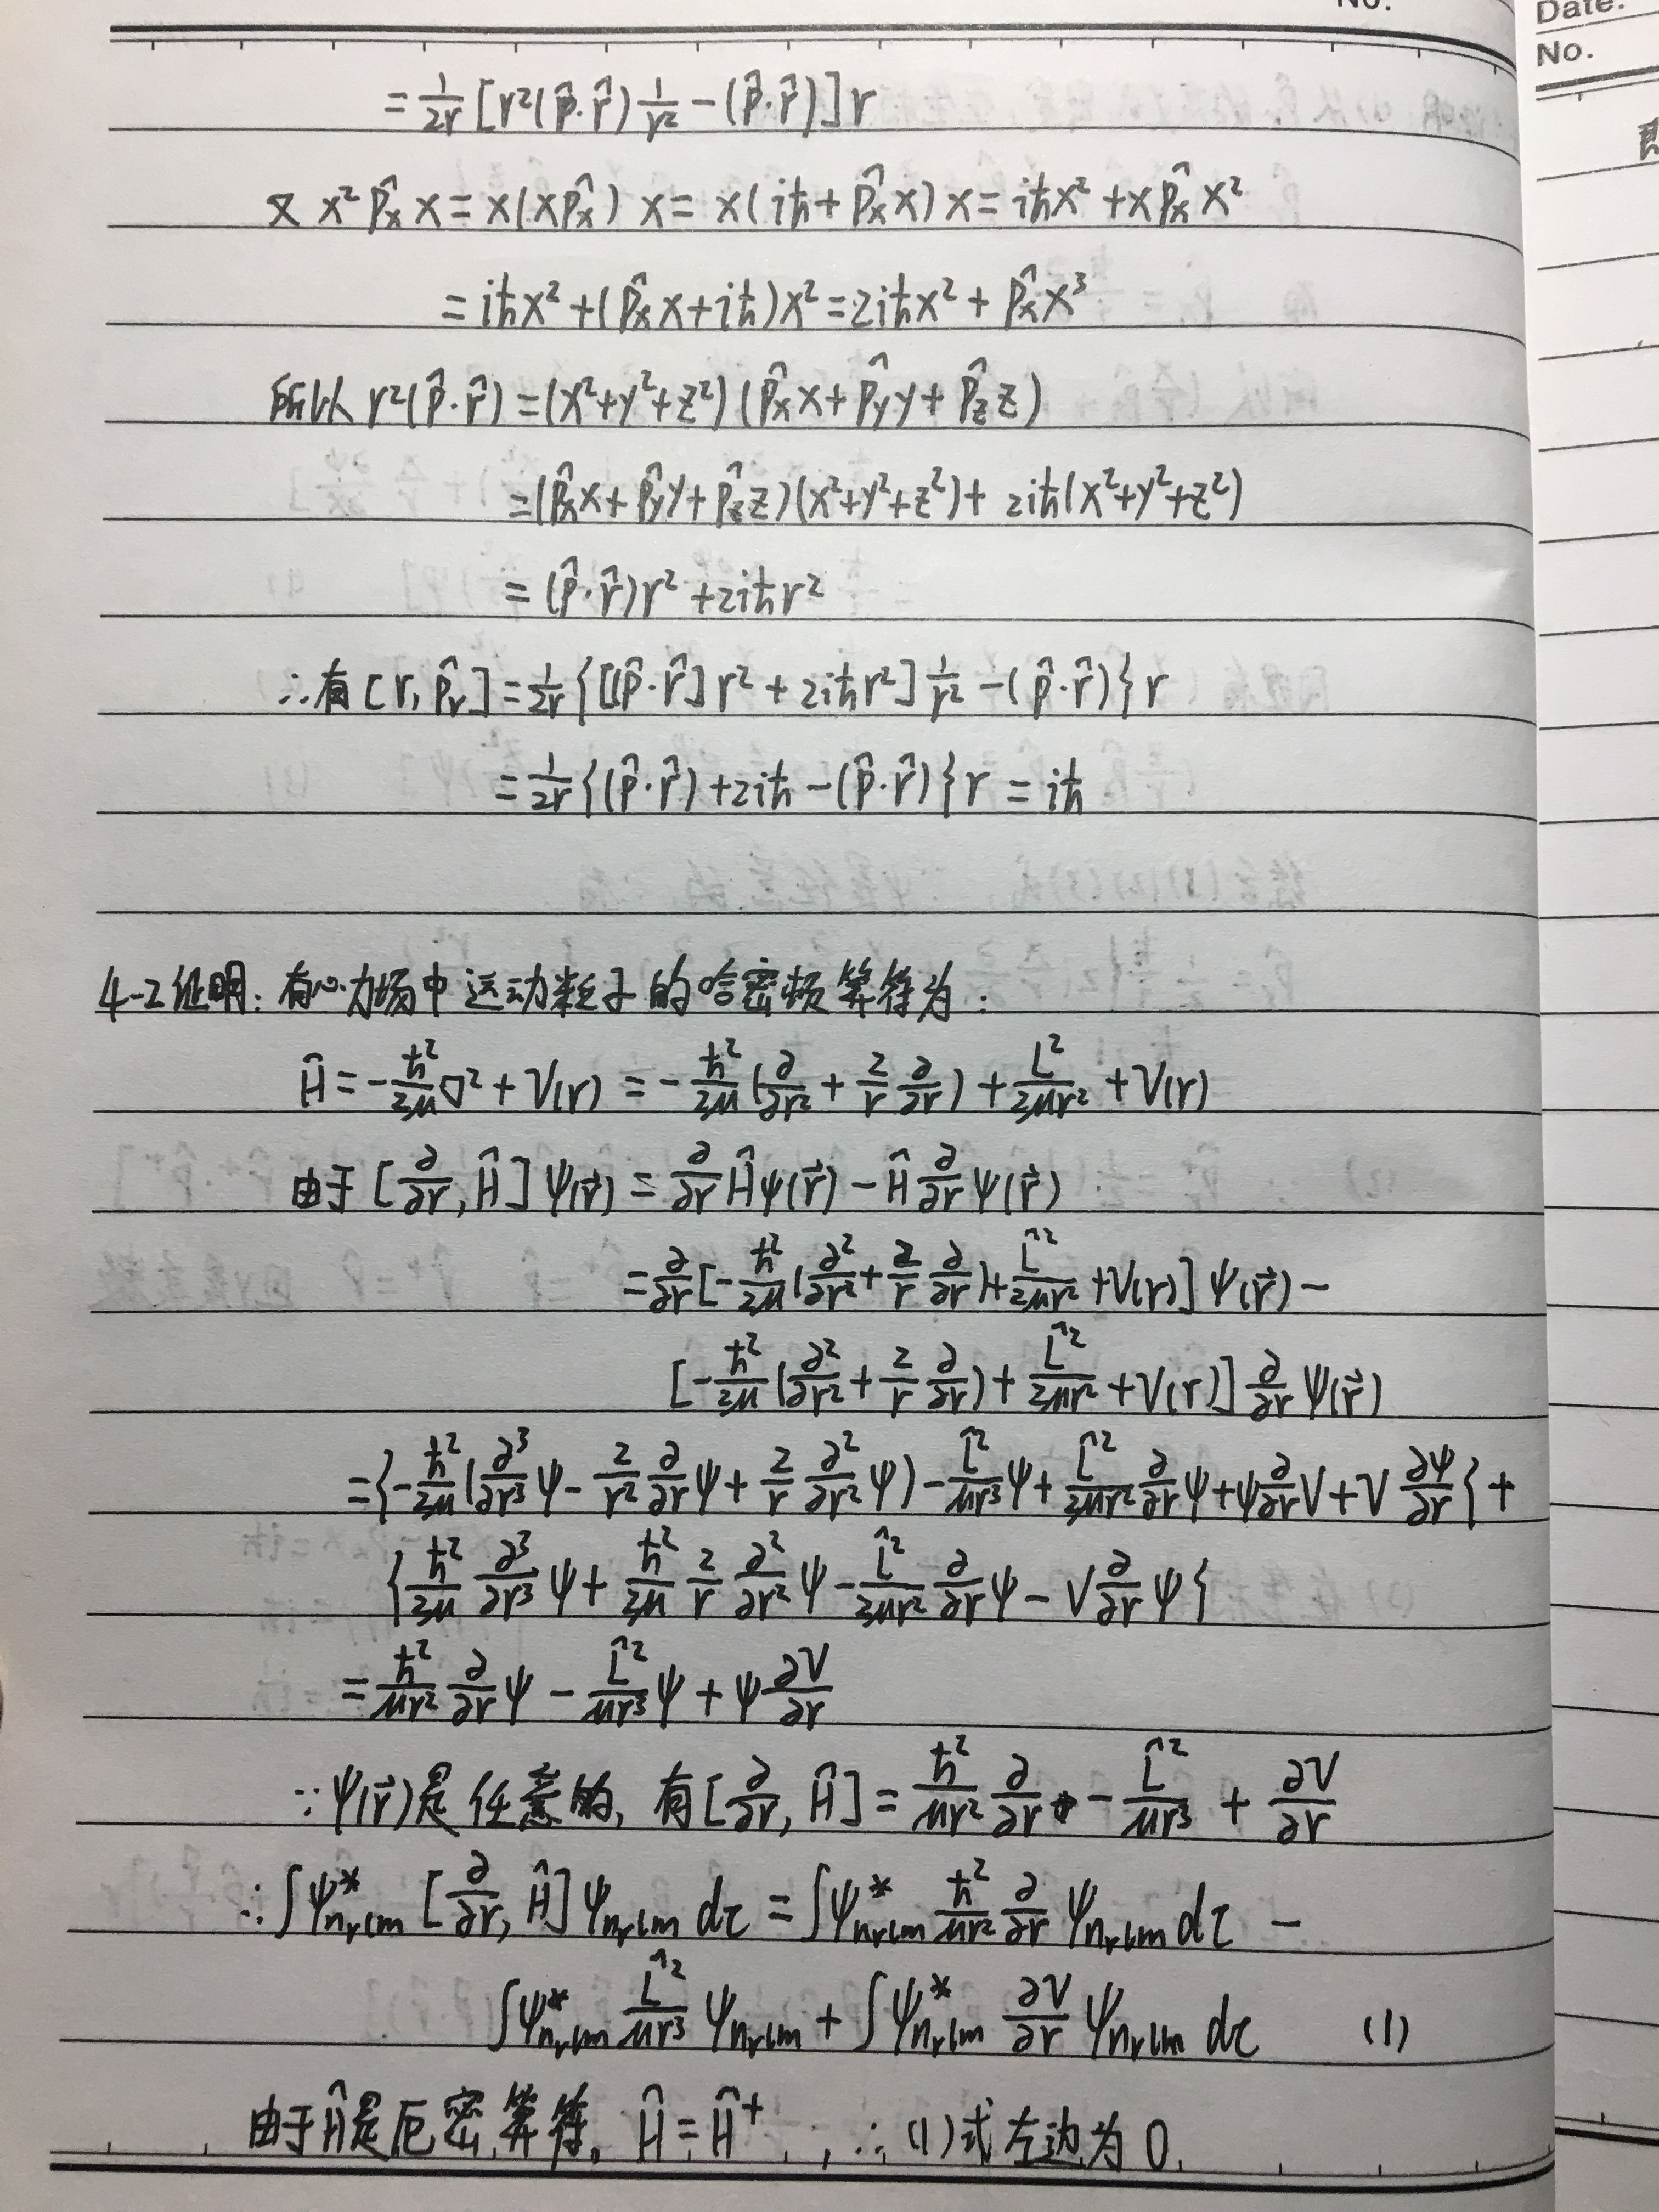 No.
Date.
No.
= 1/2r [r²(p̂·r̂) 1/r² − (p̂·r̂)] r
又 x² p̂ₓ x = x(x p̂ₓ) x = x(iħ + p̂ₓ x) x = iħx² + x p̂ₓ x²
= iħx² + (p̂ₓ x + iħ)x² = 2iħx² + p̂ₓ x³
所以 r²(p̂·r̂) = (x²+y²+z²)(p̂ₓ x + p̂_y y + p̂_z z)
= (p̂ₓ x + p̂_y y + p̂_z z)(x²+y²+z²) + 2iħ(x²+y²+z²)
= (p̂·r̂)r² + 2iħr²
∴有 [r, p̂_r] = 1/2r {[(p̂·r̂] r² + 2iħr²] 1/r² − (p̂·r̂)} r
= 1/2r {(p̂·r̂) + 2iħ − (p̂·r̂)} r = iħ
4-2 证明: 有心力场中运动粒子的哈密顿算符为:
Ĥ = −ħ²/2μ ∇² + V(r) = −ħ²/2μ (∂/∂r² + 2/r ∂/∂r) + L²/2μr² + V(r)
由于 [∂/∂r, Ĥ] ψ(r⃗) = ∂/∂r Ĥψ(r⃗) − Ĥ ∂/∂r ψ(r⃗)
= ∂/∂r [−ħ²/2μ (∂²/∂r² + 2/r ∂/∂r) + L̂²/2μr² + V(r)] ψ(r⃗) −
[−ħ²/2μ (∂²/∂r² + 2/r ∂/∂r) + L̂²/2μr² + V(r)] ∂/∂r ψ(r⃗)
= {−ħ²/2μ (∂³/∂r³ ψ − 2/r² ∂/∂r ψ + 2/r ∂²/∂r² ψ) − L̂²/μr³ ψ + L̂²/2μr² ∂/∂r ψ + ψ ∂/∂r V + V ∂ψ/∂r} +
{ħ²/2μ ∂³/∂r³ ψ + ħ²/2μ 2/r ∂²/∂r² ψ − L̂²/2μr² ∂/∂r ψ − V ∂/∂r ψ}
= ħ²/μr² ∂/∂r ψ − L̂²/μr³ ψ + ψ ∂V/∂r
∵ψ(r⃗)是任意的, 有 [∂/∂r, Ĥ] = ħ²/μr² ∂/∂r − L̂²/μr³ + ∂V/∂r
∴ ∫ψ*_{n_r lm} [∂/∂r, Ĥ] ψ_{n_r lm} dτ = ∫ψ*_{n_r lm} ħ²/μr² ∂/∂r ψ_{n_r lm} dτ −
∫ψ*_{n_r lm} L̂²/μr³ ψ_{n_r lm} + ∫ψ*_{n_r lm} ∂V/∂r ψ_{n_r lm} dτ (1)
由于Ĥ是厄密算符。Ĥ = Ĥ⁺, ∴ (1)式左边为0.